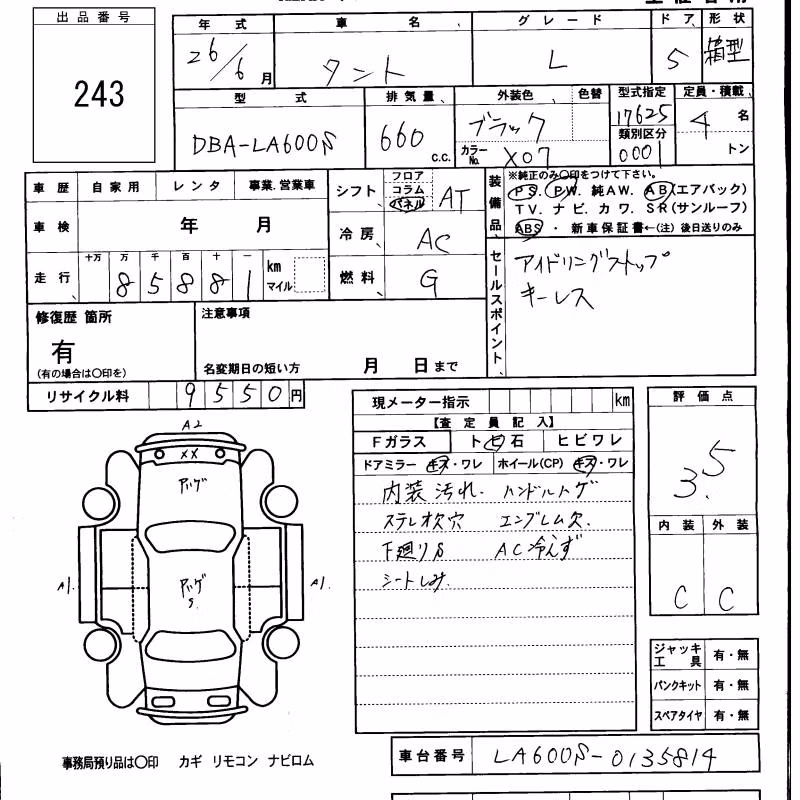 出品番号
243
年式 車名 グレード ドア 形状
26/6月 タント L 5 箱型
型式 排気量 外装色 色替 型式指定 定員・積載
DBA-LA600S 660 c.c. ブラック カラーNo. X07 17625 4名
類別区分 0001 トン
車歴 自家用 レンタ 事業.営業車
車検 年 月
走行 十万 万 千 百 十 一
8 5 8 8 1 km マイル
シフト フロア コラム パネル AT
冷房 AC
燃料 G
装備品
※純正のみ〇印をつけて下さい。
PS. PW. 純AW. AB(エアバック)
TV. ナビ. カワ. SR(サンルーフ)
ABS ・ 新車保証書←(注) 後日送りのみ
セールスポイント
アイドリングストップ
キーレス
修復歴 箇所
有
(有の場合は〇印を)
注意事項
名変期日の短い方 月 日まで
リサイクル料 9550円
現メーター指示 km
【査定員記入】
Fガラス トビ石 ヒビワレ
ドアミラー キズ・ワレ ホイール(CP) キズ・ワレ
内装汚れ. ハンドルトゲ
ステレオ欠穴 エンブレム欠.
下廻りS AC冷えず
シートしみ.
評価点
3.5
内装 外装
C C
A2
XX
A1. A1.
ジャッキ工具 有・無
パンクキット 有・無
スペアタイヤ 有・無
事務局預り品は〇印 カギ リモコン ナビロム
車台番号 LA600S-0135814